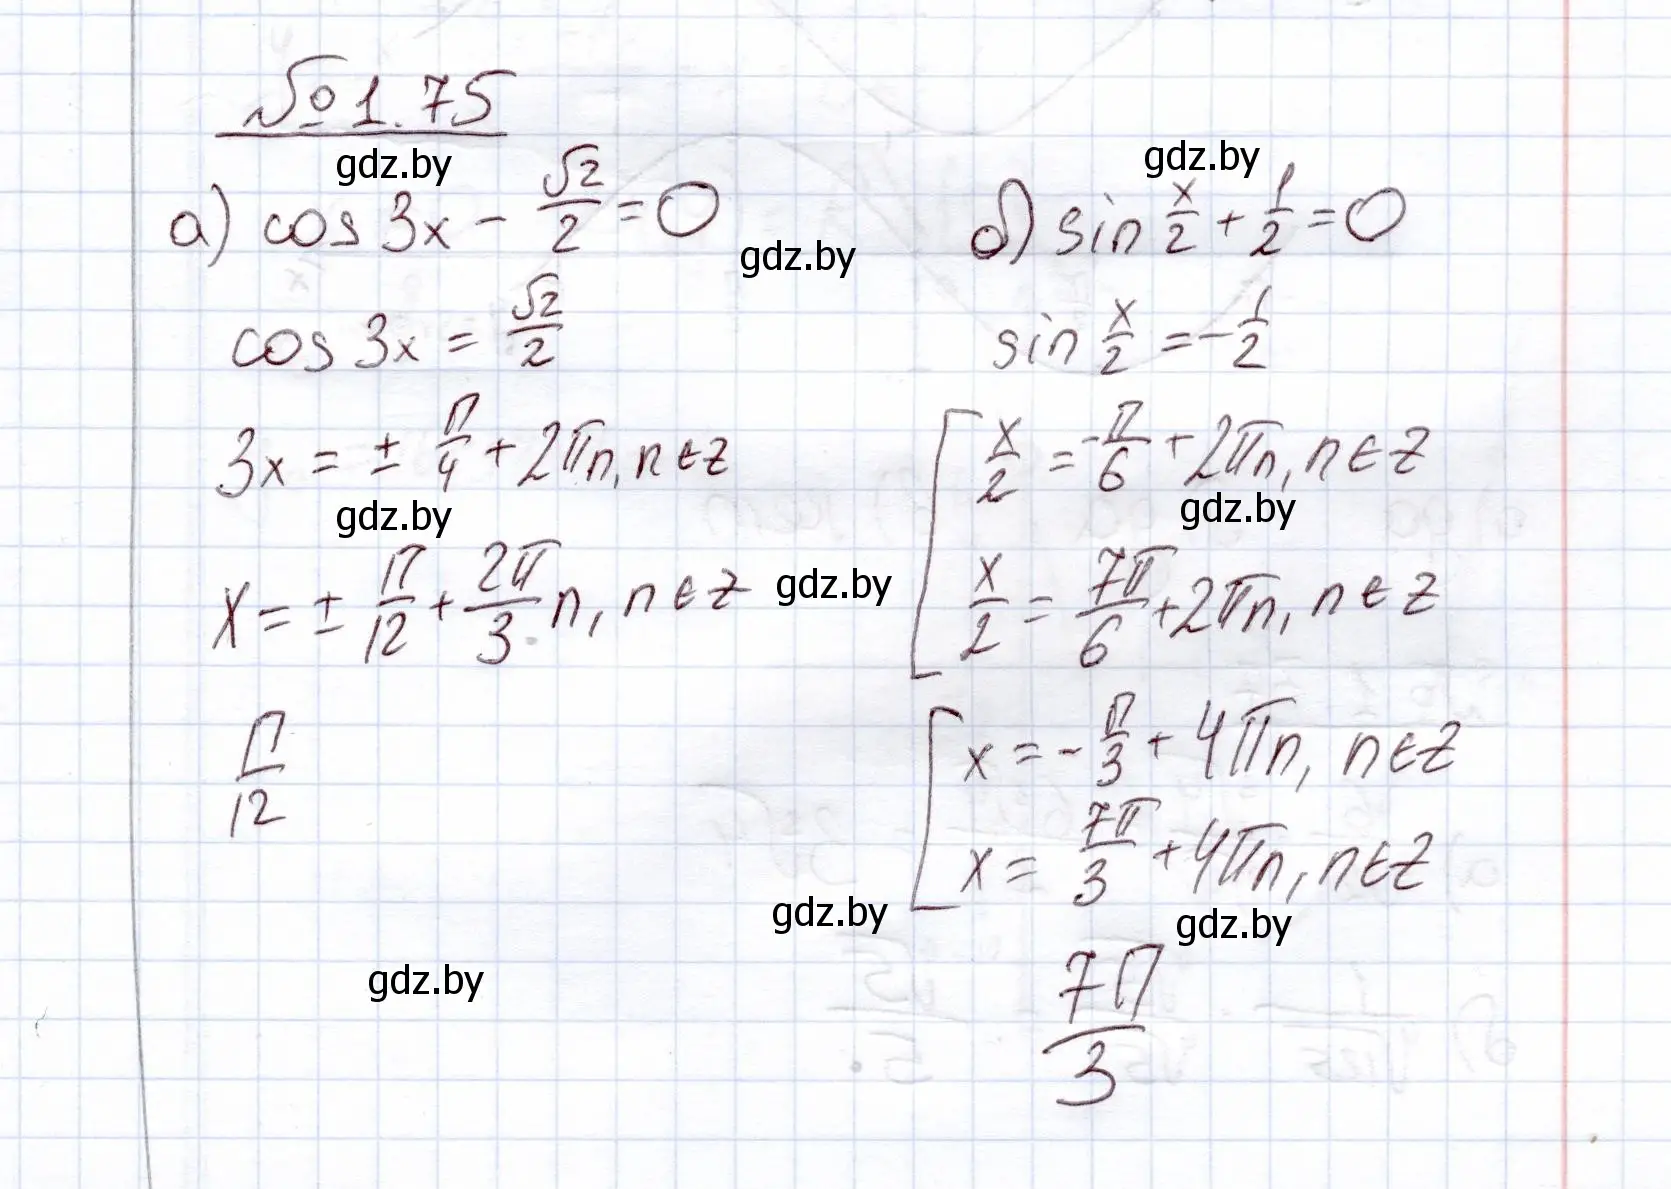 № 1.75
gdz.by
gdz.by
а) cos 3x - √2/2 = 0
gdz.by
cos 3x = √2/2
3x = ± π/4 + 2πn, n ∈ z
gdz.by
x = ± π/12 + 2π/3 n, n ∈ z
gdz.by
π/12
gdz.by
б) sin x/2 + 1/2 = 0
sin x/2 = -1/2
x/2 = -π/6 + 2πn, n ∈ Z
gdz.by
x/2 = 7π/6 + 2πn, n ∈ Z
x = -π/3 + 4πn, n ∈ Z
x = 7π/3 + 4πn, n ∈ Z
gdz.by
gdz.by
7π/3